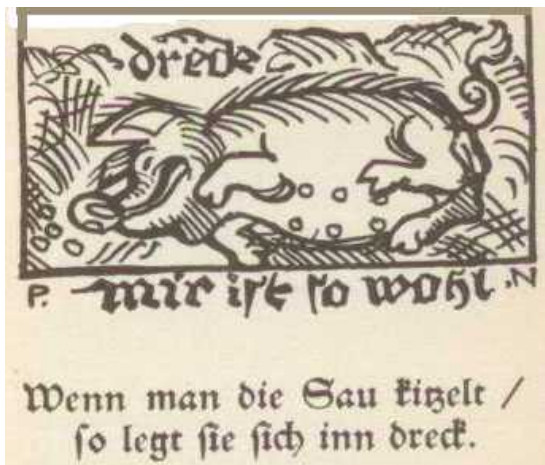 dreck
P. mir ist so wohl .N
Wenn man die Sau kitzelt /
so legt sie sich inn dreck.